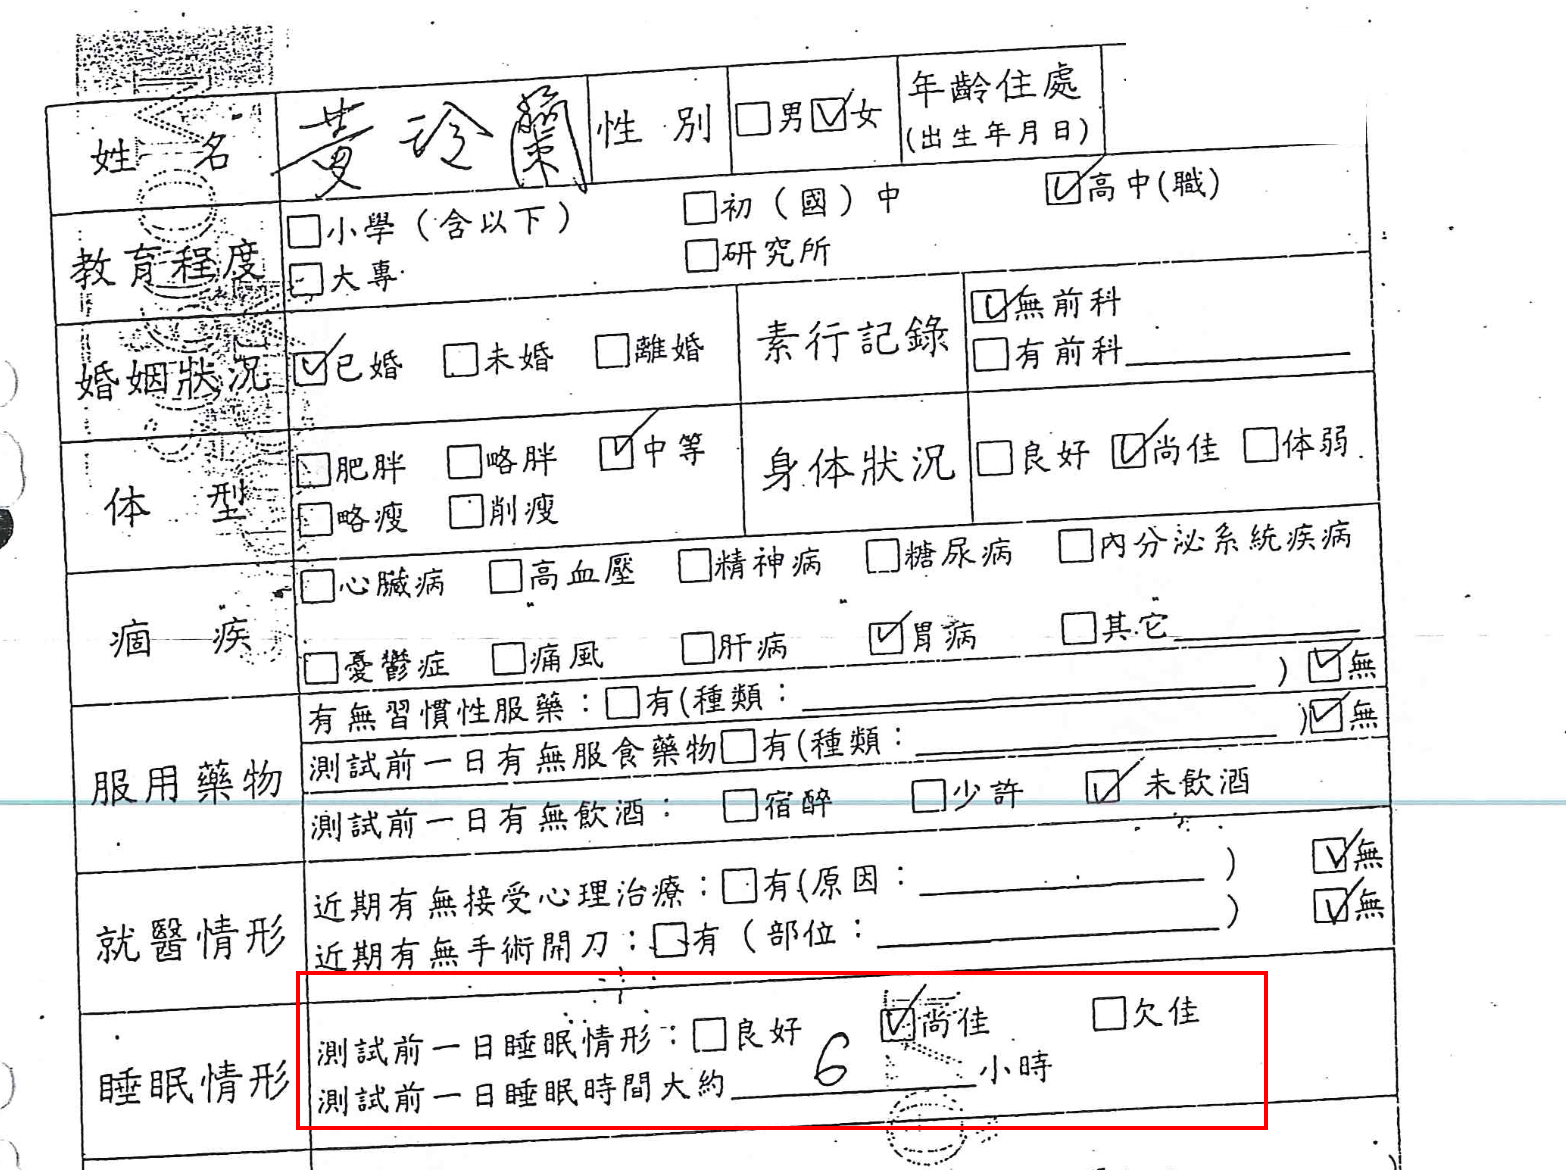 姓 名 黃玲蘭 性 別 □男☑女 年齡住處
(出生年月日)
教育程度 □小學(含以下) □初(國)中 ☑高中(職)
□大專 □研究所
婚姻狀況 ☑已婚 □未婚 □離婚 素行記錄 ☑無前科
□有前科
体 型 □肥胖 □略胖 ☑中等 身体狀況 □良好 ☑尚佳 □体弱
□略瘦 □削瘦
痼 疾 □心臟病 □高血壓 □精神病 □糖尿病 □內分泌系統疾病
□憂鬱症 □痛風 □肝病 ☑胃病 □其它
服用藥物 有無習慣性服藥:□有(種類: ) ☑無
測試前一日有無服食藥物□有(種類: )☑無
測試前一日有無飲酒: □宿醉 □少許 ☑未飲酒
就醫情形 近期有無接受心理治療:□有(原因: ) ☑無
近期有無手術開刀:□有(部位: ) ☑無
睡眠情形 測試前一日睡眠情形:□良好 ☑尚佳 □欠佳
測試前一日睡眠時間大約 6 小時